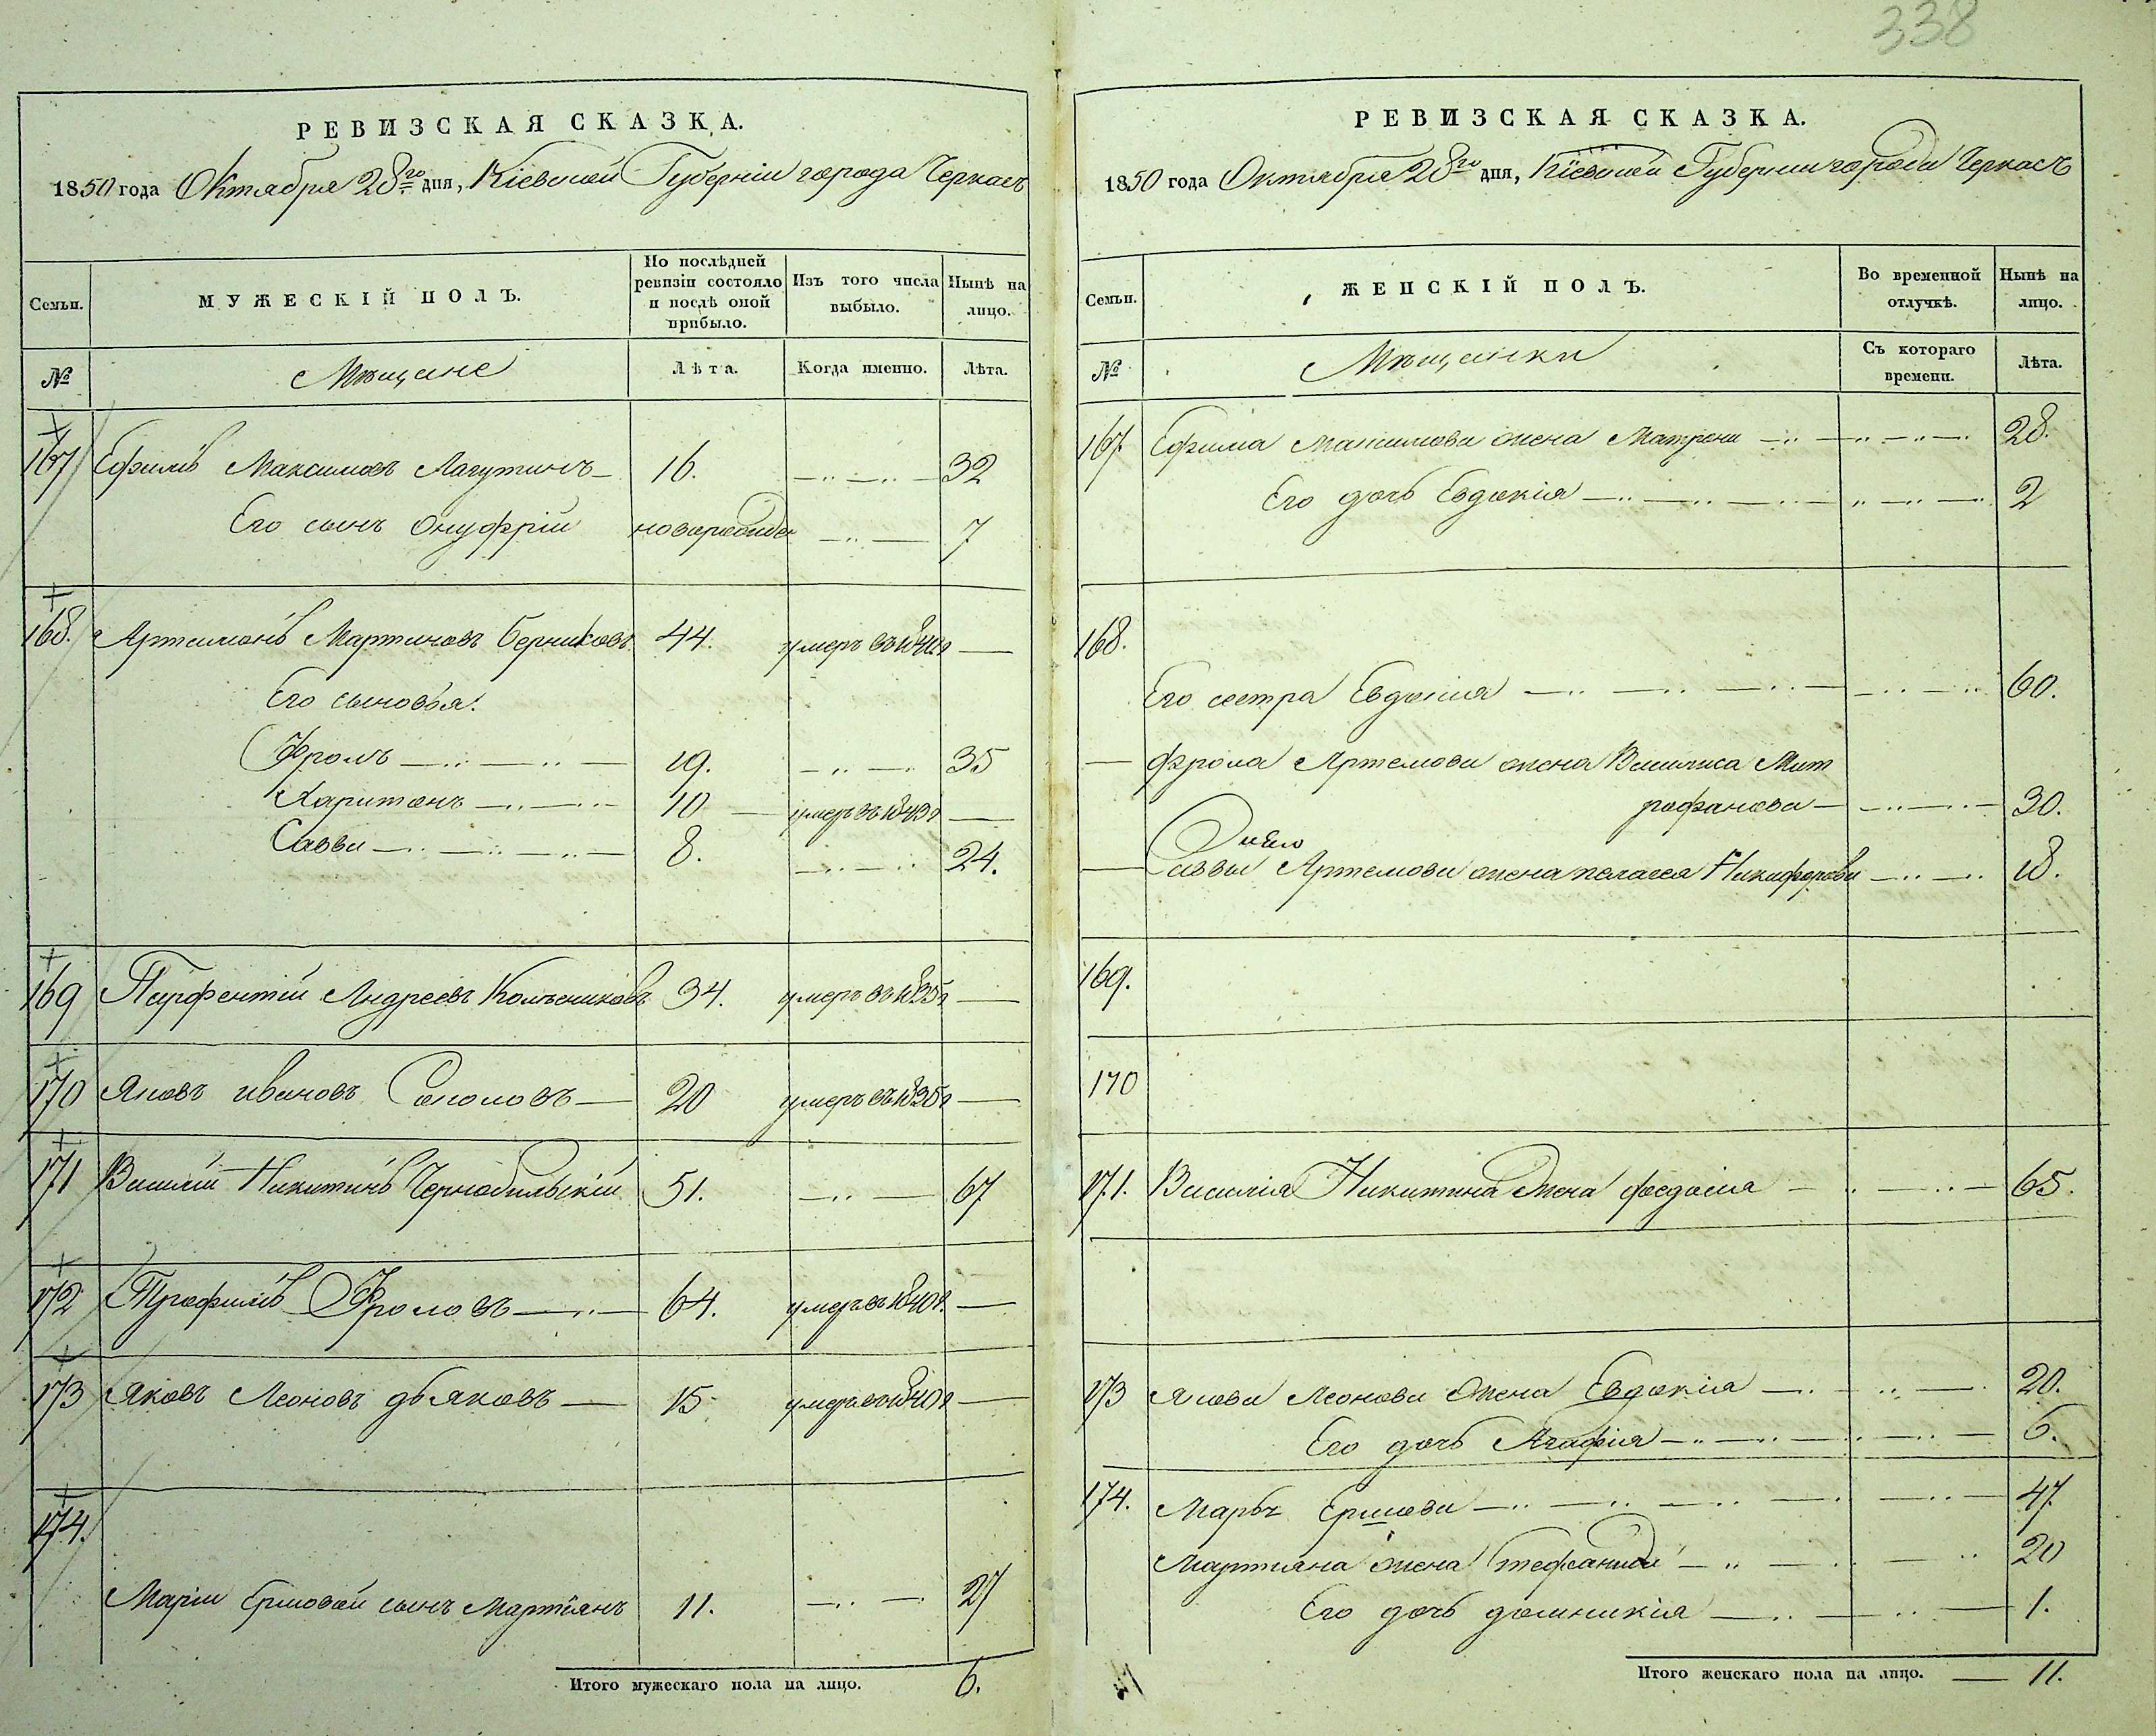 338
РЕВИЗСКАЯ СКАЗКА.
1850 года Октября 28го дня, Кіевской Губерніи города Черкасъ
Семьи.
МУЖЕСКІЙ ПОЛЪ.
По послѣдней ревизіи состояло и послѣ оной прибыло.
Изъ того числа выбыло.
Нынѣ на лицо.
№
Мѣщане
Лѣта.
Когда именно.
Лѣта.
167 Ефимъ Максимовъ Лагутинъ 16. 32
Его сынъ Онуфрій новорожде 7
168. Артемонъ Мартиновъ Берниковъ 44. умеръ въ 1840г
Его сыновья.
Фролъ 19. 35
Харитонъ 10 умеръ въ 1843г
Савва 8. 24.
169 Парфентій Андреевъ Колѣсниковъ 34. умеръ въ 1835г
170 Яковъ ивановъ Соколовъ 20 умеръ въ 1835г
171 Василій Никитинъ Чернобильскій 51. 67
172 Трофимъ Фроловъ 64. умеръ въ 1840г.
173 Яковъ Леоновъ дьяковъ 15 умеръ въ 1840г
174.
Маріи Ершовой сынъ Мартіянъ 11. 27
Итого мужескаго пола на лицо. 6.
РЕВИЗСКАЯ СКАЗКА.
1850 года Октября 28го дня, Кіевской Губерніи города Черкасъ
Семьи.
ЖЕНСКІЙ ПОЛЪ.
Во временной отлучкѣ.
Нынѣ на лицо.
№
Мѣщанки
Съ котораго времени.
Лѣта.
167. Ефима Максимова жена Матрена 28.
Его дочь Евдокія 2
168.
Его сестра Евдокія 60.
Фрола Артемова жена Василиса Мит
рофанова 30.
Саввы Артемова жена пелагея Никифорова 18.
169.
170
171. Василія Никитина жена феодосія 65.
173 Якова Леонова жена Евдокія 20.
Его дочь Агафія 6.
174. Марья Ершова 47.
Мартияна жена Стефанида 20
Его дочь домникія 1.
Итого женскаго пола на лицо. 11.